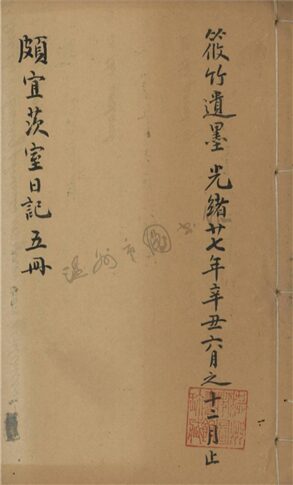 筱竹遺墨 光緒廿七年辛丑六月之十二月止
頗宜茨室日記 五冊
温州市圖